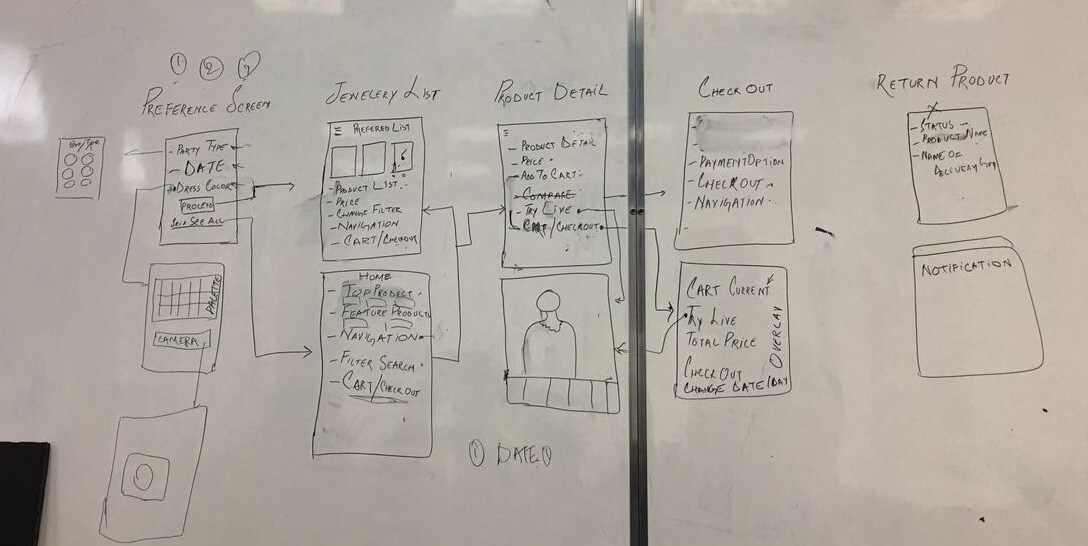 1 2 3
PREFERENCE SCREEN
PARTY TYPE
DATE
DRESS COLOR
PROCEED
SEE ALL
PALATTE
CAMERA
JEWELERY LIST
PREFERED LIST
- PRODUCT LIST
- PRICE
- CHANGE FILTER
- NAVIGATION
- CART/CHECKOUT
HOME
- TOP PRODUCT
- FEATURE PRODUCT
- NAVIGATION
- FILTER SEARCH
- CART/CHECK OUT
PRODUCT DETAIL
- PRODUCT DETAIL
- PRICE
- ADD TO CART
- COMPARE
- TRY LIVE
- CART/CHECKOUT
1 DATE
CHECK OUT
- PAYMENT OPTION
- CHECKOUT
- NAVIGATION
CART CURRENT
TRY LIVE
TOTAL PRICE
CHECK OUT
CHANGE DATE/DAY
OVERLAY
RETURN PRODUCT
- STATUS
- PRODUCT NAME
- NAME OF
DELIVERY
NOTIFICATION